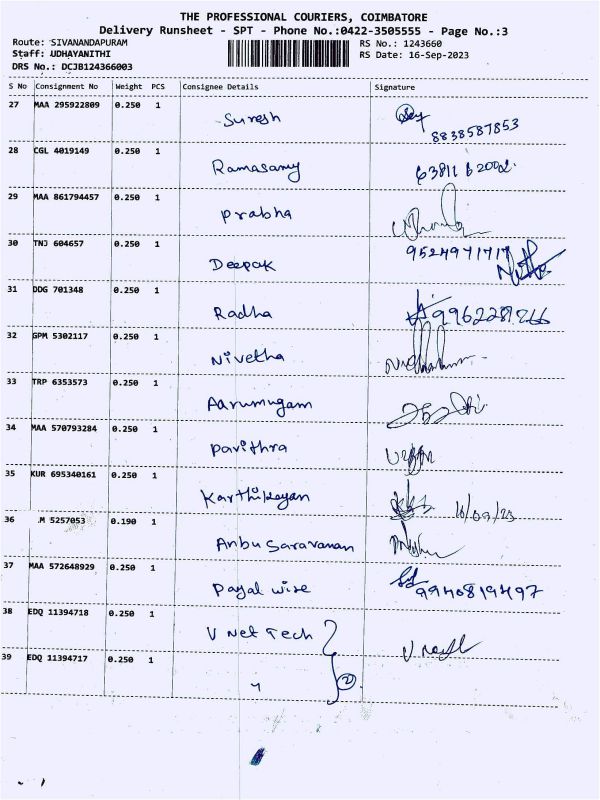 THE PROFESSIONAL COURIERS, COIMBATORE
Delivery Runsheet - SPT - Phone No.:0422-3505555 - Page No.:3
Route: SIVANANDAPURAM RS No.: 1243660
Staff: UDHAYANITHI RS Date: 16-Sep-2023
DRS No.: DCJB124366003
S No Consignment No Weight PCS Consignee Details Signature
27 MAA 295922809 0.250 1
Suresh
8838587853
28 CGL 4019149 0.250 1
Ramasamy
29 MAA 861794457 0.250 1
Prabha
30 TNJ 604657 0.250 1
Deepak
31 DDG 701348 0.250 1
Radha
32 GPM 5302117 0.250 1
Nivetha
33 TRP 6353573 0.250 1
Aarumugam
34 MAA 570793284 0.250 1
Pavithra
35 KUR 695340161 0.250 1
Karthikeyan 16/09/23
36 .M 5257053 0.190 1
Anbu Saravanan
37 MAA 572648929 0.250 1
Payal wise 9940819497
38 EDQ 11394718 0.250 1
V Net Tech
39 EDQ 11394717 0.250 1
"
2